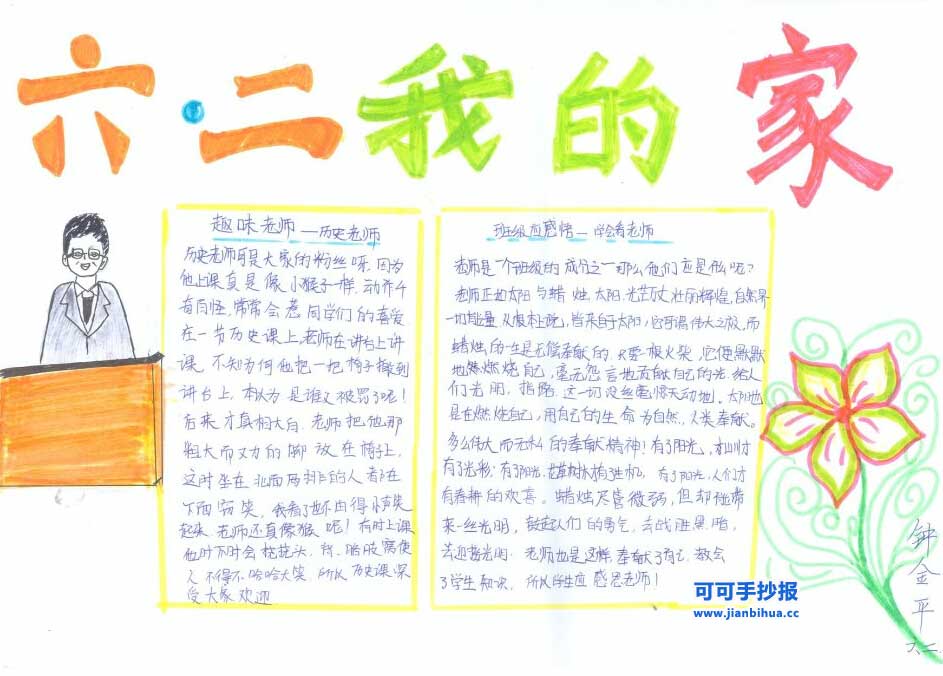 六·二我的家
趣味老师—历史老师
历史老师可是大家的粉丝呀,因为
他上课真是像小猴子一样,动作千
奇百怪,常常会惹同学们的喜爱
在一节历史课上,老师在讲台上讲
课,不知为何他把一把椅子搬到
讲台上,本以为是谁又被罚了呢!
后来才真相大白,老师把他那
粗大而又力的脚放在椅上,
这时坐在北面的人都在
下面窃笑,我看了也不由得小声笑
起来,老师还真像猴呢!有时上课
他时不时会挖挖头,使
人不得不哈哈大笑,所以历史课深
受大家欢迎
班级应感悟—学会看老师
老师是一个班级的成分之一那么他们应是什么呢?
老师正如太阳与蜡烛,太阳,光芒万丈,壮丽辉煌,自然界
一切能量从根本上说,皆来自于太阳,它可谓伟大之极,而
蜡烛的一生是无偿奉献的,只要一根火柴,它便默默
地燃烧自己,毫无怨言地贡献自己的光,给人
们光明,指路,这一切没丝毫惊天动地。太阳也
是在燃烧自己,用自己的生命为自然,人类奉献。
多么伟大而无私的奉献精神!有了阳光,才
有了光彩,有了阳光,花草树木有生机,有了阳光,人们才
有春耕的欢喜。蜡烛尽管微弱,但却能带
来一丝光明,鼓起人们的勇气,去战胜黑暗,
去迎着光明。老师也是这样,奉献了自己,教会
了学生知识,所以学生应感恩老师!
可可手抄报
www.jianbihua.cc
钟金平
六、二